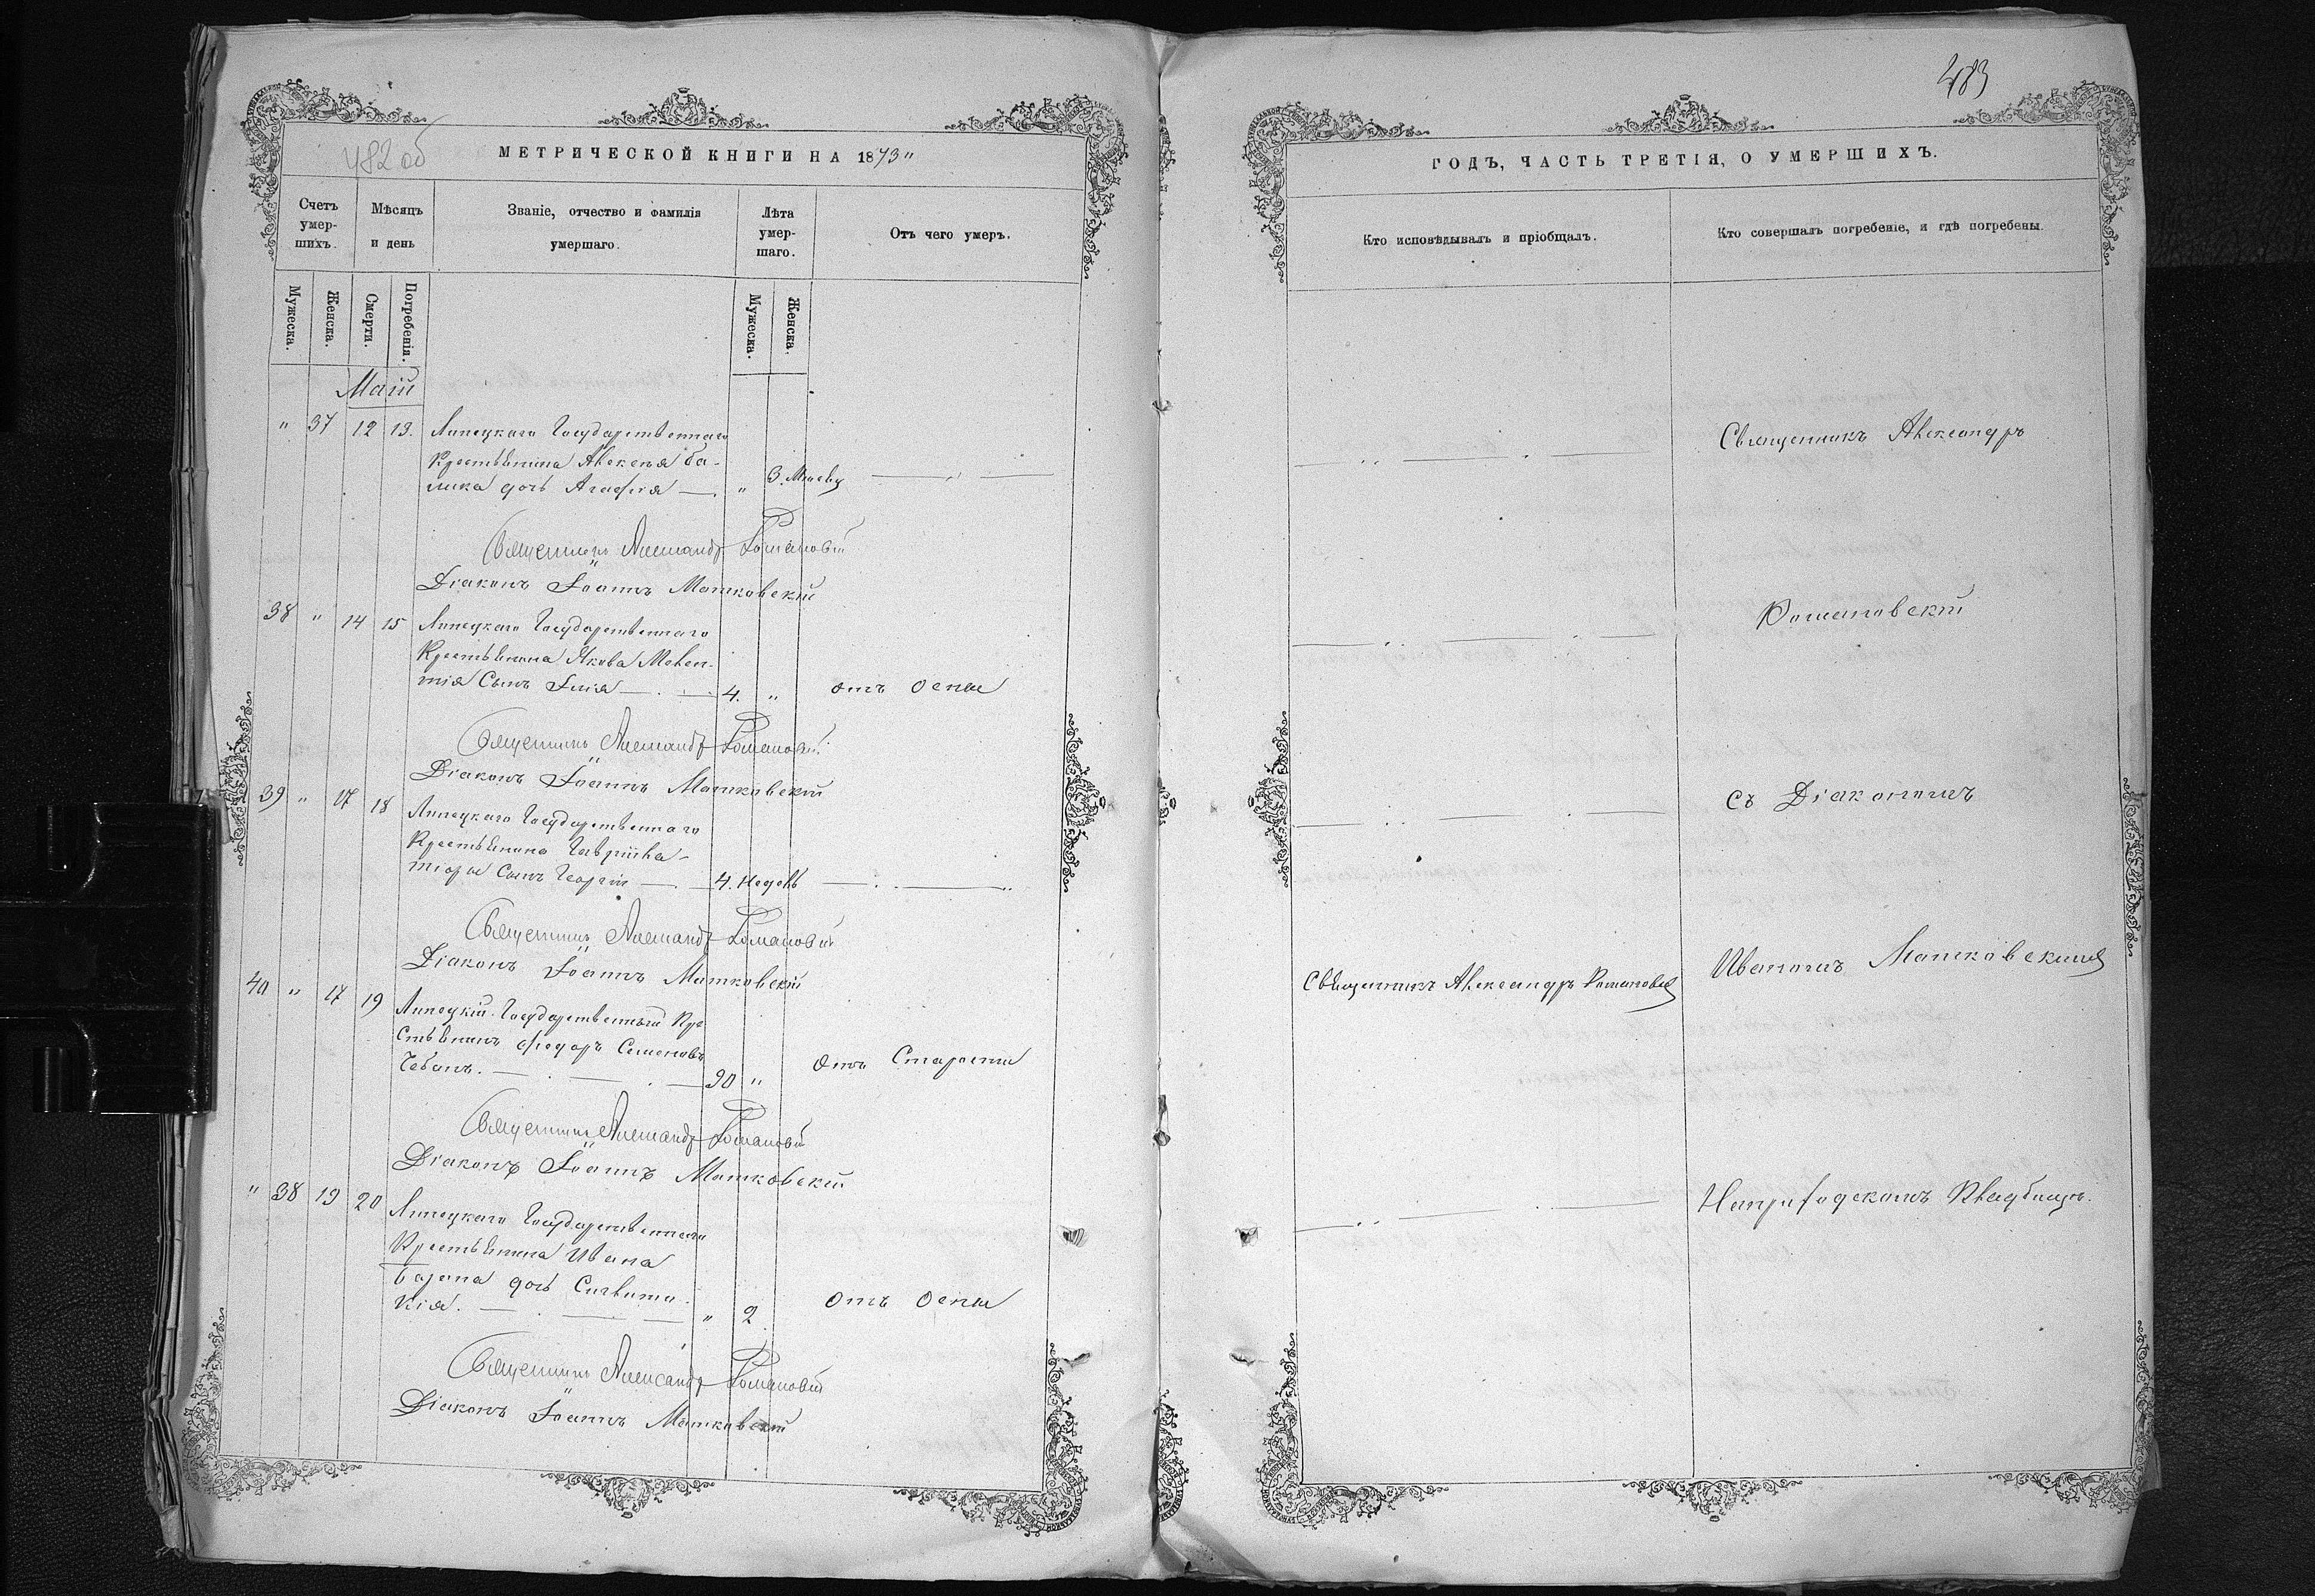 482 об
МЕТРИЧЕСКОЙ КНИГИ НА 1873"
Счетъ умер- шихъ.
Мѣсяцъ и день
Званіе, отчество и фамилія умершаго.
Лѣта умер- шаго.
Отъ чего умеръ.
Мужеска.
Женска.
Смерти.
Погребенія.
Мужеска.
Женска.
Маій
" 37 12 13. Липецкаго Государственнаго
Крестьянина Алексѣя Ба-
лика дочь Агафія — . " 3. Мѣсяц
Священникъ Александръ Романовскій
Діаконъ Іоаннъ Матковскій
38 " 14 15 Липецкаго Государственнаго
Крестьянина Якова Мелен-
тія Сынъ Илія — . 4. " отъ Оспы
Священникъ Александръ Романовскій
Діаконъ Іоаннъ Матковскій
39 " 17 18 Липецкаго Государственнаго
Крестьянина Гавріила
Сынъ Георгій — 4. Недель
Священникъ Александръ Романовскій
Діаконъ Іоаннъ Матковскій
40 " 17 19 Липецкій Государственный Кре
стьянинъ Федоръ Семеновъ
Чебанъ. — . — . — 90 " Отъ Старости
Священникъ Александръ Романовскій
Діаконъ Іоаннъ Матковскій
" 38 19 20 Липецкаго Государственнаго
Крестьянина Ивана
дочь
кія. — . — " 2. Отъ Оспы
Священникъ Александръ Романовскій
Діаконъ Іоаннъ Матковскій
483
ГОДЪ, ЧАСТЬ ТРЕТІЯ, О УМЕРШИХЪ.
Кто исповѣдывалъ и пріобщалъ.
Кто совершалъ погребеніе, и гдѣ погребены.
Священникъ Александръ
Романовскій
Съ Діакономъ
Священникъ Александръ Романовс
Иваномъ Матковскимъ
Наприходскомъ Кладбищѣ.